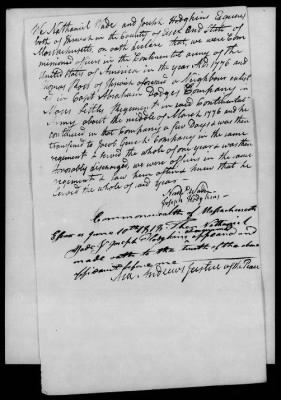 We Nathaniel Wade and Joseph Hodgkins Esquires
both of Ipswich in the County of Essex and State of
Massachusetts, on oath declare that, we were Com
missioned officers in the Continental army of the
United States of America in the year AD. 1776 and
Ross of Ipswich aforesaid a Neighbour enlist
ed in Capt Abraham Dodges Company in
Moses Littles Regiment in said Continental
Army about the middle of March 1776 and he
continued in that Company a few days & was then
transferred to Company in the same
regiment & served the whole of one year & was then
honorably discharged, we were officers in the same
regiment & knew that he
served the whole of said year
Nath Wade
Joseph Hodgkins
Commonwealth of Massachusetts
Essex ss June 10th 1818. Then Nathaniel
Wade & Joseph Hodgkins appeared and
made oath to the truth of the above
affidavit before me
Andrews Justice of the Peace